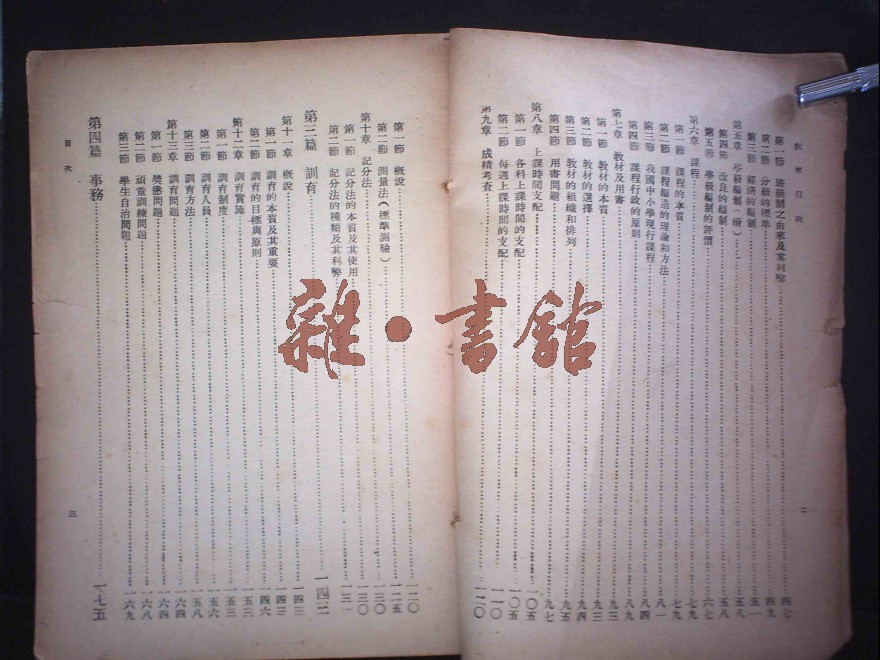 教育行政
第一節 班級制之由來及其利弊 四七
第二節 分級的標準 四九
第三節 經濟的編制 五一
第五章 學級編制(續) 五八
第四節 改良的編制 五八
第五節 學級編制的評價 六七
第六章 課程 七九
第一節 課程的本質 七九
第二節 課程編造的理論和方法 八一
第三節 我國中小學現行課程 八四
第四節 課程行政的原則 八九
第七章 教材及用書 九三
第一節 教材的本質 九三
第二節 教材的選擇 九四
第三節 教材的組織和排列 九五
第四節 用書問題 九七
第八章 上課時間支配 一〇五
第一節 各科上課時間的支配 一〇五
第二節 每週上課時間的支配 一一〇
第九章 成績考查 一二〇
二
第一節 概說 一二〇
第二節 測量法(標準測驗) 一二五
第十章 記分法 一三〇
第一節 記分法的本質及其使用 一三〇
第二節 記分法的種類及其利弊 一三一
第三篇 訓育 一四三
第十一章 概說 一四三
第一節 訓育的本質及其重要 一四三
第二節 訓育的目標與原則 一四六
第十二章 訓育實施 一五三
第一節 訓育制度 一五三
第二節 訓育人員 一五六
第三節 訓育方法 一五八
第十三章 訓育問題 一六四
第一節 獎懲問題 一六四
第二節 頑童訓練問題 一六八
第三節 學生自治問題 一六九
第四篇 事務 一七五
目次
三
雜·書館